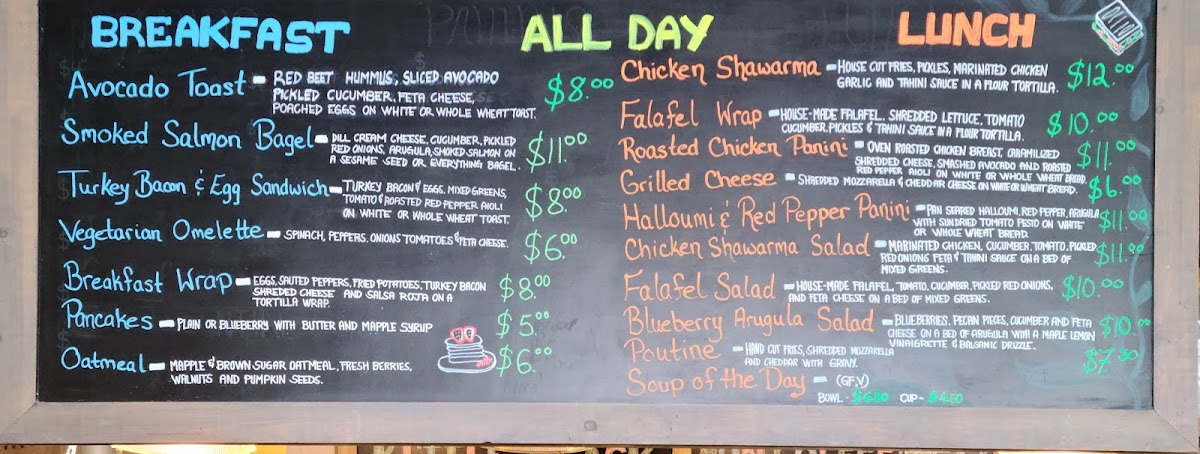 BREAKFAST
ALL DAY
LUNCH
Avocado Toast - RED BEET HUMMUS, SLICED AVOCADO
PICKLED CUCUMBER, FETA CHEESE,
POACHED EGGS ON WHITE OR WHOLE WHEAT TOAST.
$8.00
Smoked Salmon Bagel - DILL CREAM CHEESE, CUCUMBER, PICKLED
RED ONIONS, ARUGULA, SMOKED SALMON ON
A SESAME SEED OR EVERYTHING BAGEL.
$11.00
Turkey Bacon & Egg Sandwich - TURKEY BACON & EGGS, MIXED GREENS,
TOMATO & ROASTED RED PEPPER AIOLI
ON WHITE OR WHOLE WHEAT TOAST.
$8.00
Vegetarian Omelette - SPINACH, PEPPERS, ONIONS TOMATOES & FETA CHEESE.
$6.00
Breakfast Wrap - EGGS, SAUTED PEPPERS, FRIED POTATOES, TURKEY BACON
SHREDED CHEESE AND SALSA ROJA ON A
TORTILLA WRAP.
$8.00
Pancakes - PLAIN OR BLUEBERRY WITH BUTTER AND MAPPLE SYRUP
$5.00
Oatmeal - MAPPLE & BROWN SUGAR OATMEAL, FRESH BERRIES,
WALNUTS AND PUMPKIN SEEDS.
$6.00
Chicken Shawarma - HOUSE CUT FRIES, PICKLES, MARINATED CHICKEN
GARLIC AND TAHINI SAUCE IN A FLOUR TORTILLA.
$12.00
Falafel Wrap - HOUSE-MADE FALAFEL, SHREDDED LETTUCE, TOMATO
CUCUMBER, PICKLES & TAHINI SAUCE IN A FLOUR TORTILLA.
$10.00
Roasted Chicken Panini - OVEN ROASTED CHICKEN BREAST, CARAMILIZED
SHREDDED CHEESE, SMASHED AVOCADO AND ROASTED
RED PEPPER AIOLI ON WHITE OR WHOLE WHEAT BREAD.
$11.00
Grilled Cheese - SHREDDED MOZZARELLA & CHEDDAR CHEESE ON WHITE OR WHEAT BREAD.
$6.00
Halloumi & Red Pepper Panini - PAN SEARED HALLOUMI, RED PEPPER, ARUGULA
WITH SUNDRIED TOMATO PESTO ON WHITE
OR WHOLE WHEAT BREAD.
$11.00
Chicken Shawarma Salad - MARINATED CHICKEN, CUCUMBER, TOMATO, PICKLED
RED ONIONS FETA & TAHINI SAUCE ON A BED OF
MIXED GREENS.
$11.00
Falafel Salad - HOUSE-MADE FALAFEL, TOMATO, CUCUMBER, PICKED RED ONIONS,
AND FETA CHEESE ON A BED OF MIXED GREENS.
$10.00
Blueberry Arugula Salad - BLUEBERRIES, PECAN PIECES, CUCUMBER AND FETA
CHEESE ON A BED OF ARUGULA WITH A MAPLE LEMON
VINAIGRETTE & BALSAMIC DRIZZLE.
$10.00
Poutine - HAND CUT FRIES, SHREDDED MOZZARELLA
AND CHEDDAR WITH GRAVY.
$7.50
Soup of the Day - (GF, V)
BOWL - $6.50 CUP - $4.50